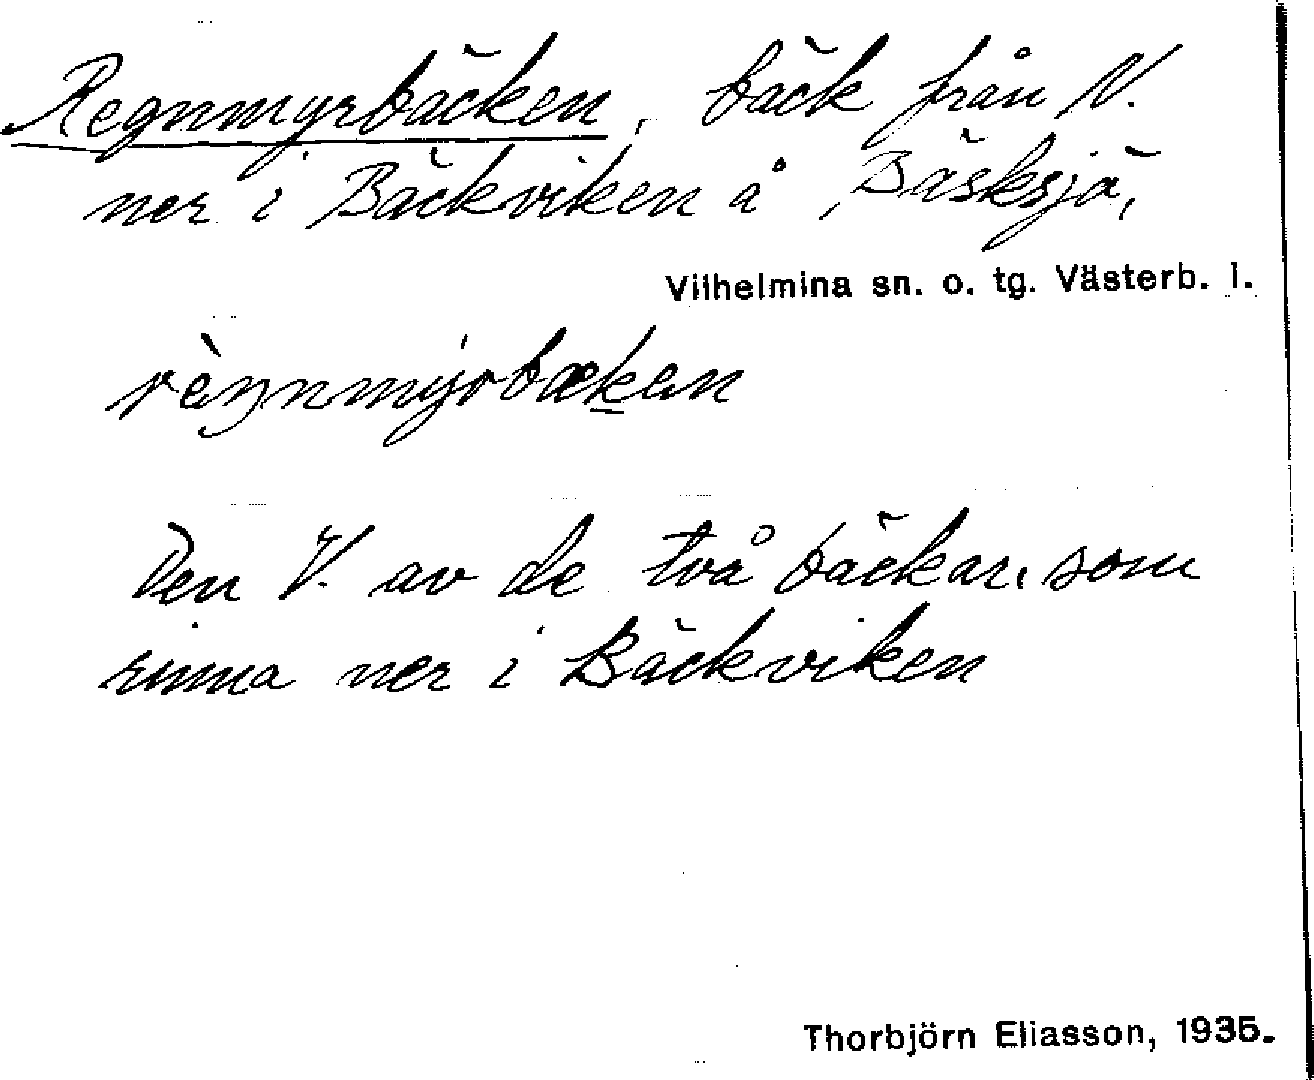 Regnmyrbäcken, bäck från N.
ner i Bäckviken å Bäsksjö,
Vilhelmina sn. o. tg. Västerb. l.
Den V. av de två bäckar, som
rinna ner i Bäckviken
Thorbjörn Eliasson, 1935.